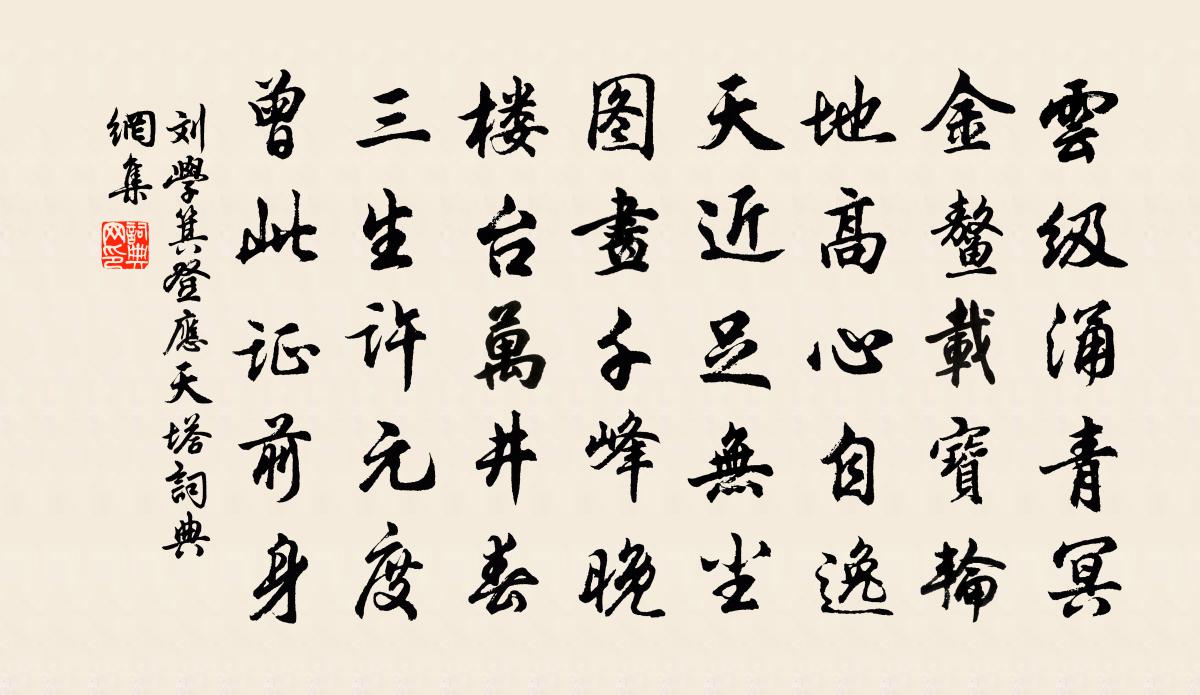 雲级涌青冥
金鳌載寶輪
地高心自逸
天近足無尘
图畫千峰晚
楼台萬井春
三生许元度
曾此证前身
刘學箕登應天塔詞典
網集
詞典网印